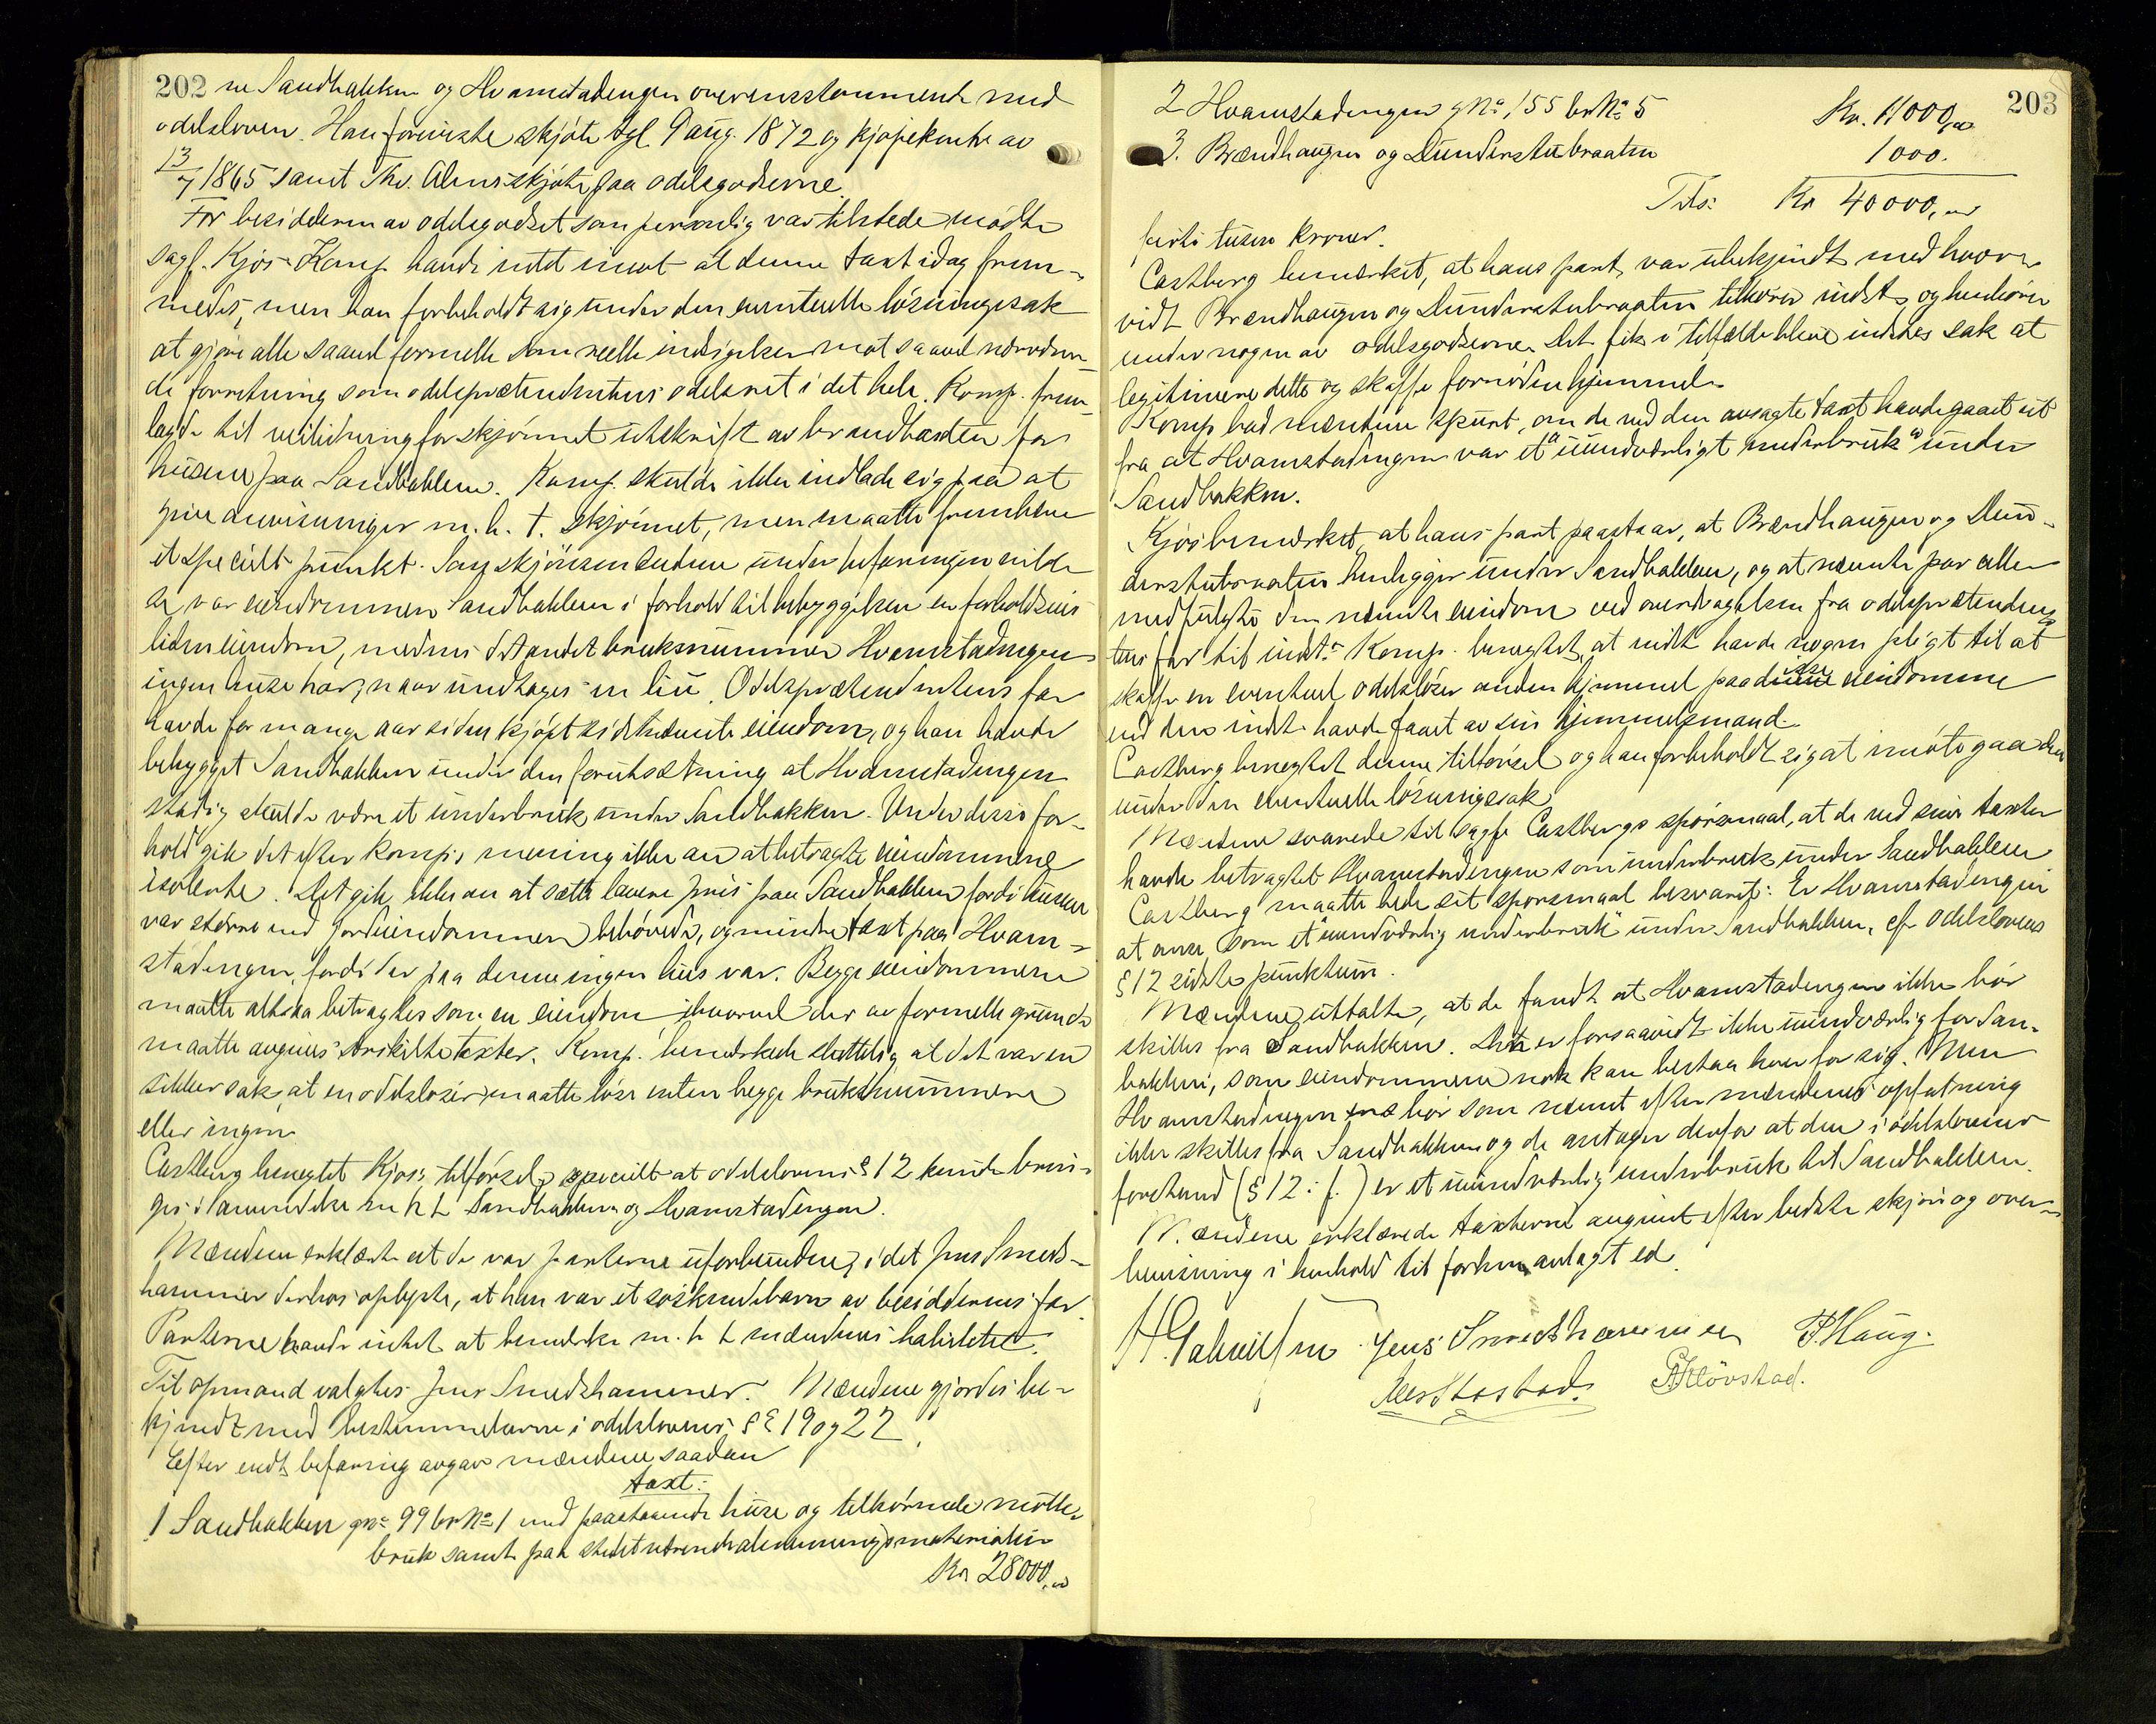 202 ne Sandbakken og Hvamstadengen overensstemmende med
odelsloven. Han foreviste skjøte tgl. 9 aug. 1872 og kjøpekontr av
13/7 1865 samt Th. Alms skjøte paa odelsgodserne.
For besidderen av odelsgodset som personlig var tilstede mødte
sagf. Kjos. Komp. havde intet imot at denne taxt idag frem-
medes, men han forbeholdt sig under den eventuelle løsningssak
at gjøre alle saavel formelle som reelle indsigelser mot saavel nærværen-
de forretning som odelsprætendentens odelsret i det hele. Komp. frem-
lagde til veiledning for skjønnet utskrift av brandtaxten for
husene paa Sandbakken. Komp. skulde ikke indlade sig paa at
give anvisninger m. h. t. skjønnet, men maatte fremhæve
et specielt punkt. Som skjønsmændene under befaringen vilde
se var eiendommen Sandbakken i forhold til bebyggelsen en forholdsvis
liden eiendom, medens det andet bruksnummer Hvamstadengen
ingen huse har, naar undtages en liu. Odelsprætendentens far
havde for mange aar siden kjøpt sidstnævnte eiendom, og han havde
bebygget Sandbakken under den forutsætning at Hvamstadengen
stadig skulde være et underbruk under Sandbakken. Under disse for-
hold gik det efter komp.s mening ikke an at betragte eiendommene
isolerte. Det gik ikke an at sætte lavere pris paa Sandbakken fordi husene
var større end jordeiendommen behøvede, og mindre taxt paa Hvam-
stadengen, fordi der paa denne ingen hus var. Begge eiendommene
maatte altsaa betragtes som en eiendom ihvorvel der av formelle grunde
maatte avgives særskilte taxter. Komp. bemerkede sluttelig, at det var en
sikker sak, at en odelsløser maatte løse enten begge bruksnummere
eller ingen.
Castberg benegtet Kjos's tilførsel, specielt at odelslovens § 12 kunde brin-
ges i anvendelse m h t Sandbakken og Hvamstadengen.
Mændene erklærte at de var parterne uforbundne, idet Jens Smeds-
hammer derhos oplyste, at han var et søskendebarn av besidderens far.
Parterne havde intet at bemerke m. h t mændenes habilitet.
Til opmand valgtes Jens Smedshammer. Mændene gjordes be-
kjendt med bestemmelserne i odelslovens §§ 19 og 22.
Efter endt befaring avgav mændene saadan
taxt:
1 Sandbakken gno 99 br No 1 med paastaaende huse og tilhørende mølle-
bruk samt paa stedet værende damningsmaterialer
Kr 28000,00
203
2 Hvamstadengen g No 155 br No 5 Kr. 11000,00
3. Brændhaugen og Dunderstubraaten 1000.
Tils: Kr 40000,00
førti tusen kroner.
Castberg bemerket, at hans part var ubekjendt med hvor-
vidt Brændhaugen og Dunderstubraaten tilhører indst. og henhører
under nogen av odelsgodserne. Det fik i tilfælde blive indstes sak at
legitimere dette og skaffe fornøden hjemmel.
Komp bad mændene spurt, om de ved den avsagte taxt havde gaaet ut
fra at Hvamstadengen var et "uundværligt underbruk" under
Sandbakken.
Kjos bemerket, at hans part paastaar, at Brændhaugen og Dun-
derstubraaten henligger under Sandbakken, og at nævnte parceller
medfulgte den nævnte eiendom ved overdragelsen fra odelsprætenden-
tens far til indst. Komp. benegtet, at indst havde nogen pligt til at
skaffe en eventuel odelsløser anden hjemmel paa disse eiendomme
end den indst. havde faaet av sin hjemmelsmand.
Castberg benegtet denne tilførsel og han forbeholdt sig at imøtegaa den
under den eventuelle løsningssak.
Mændene svarede til sagf. Castbergs spørsmaal, at de ved sine taxter
havde betragtet Hvamstadengen som underbruk under Sandbakken
Castberg maatte bede sit spørsmaal besvaret: Er Hvamstadengen
at anse som et "uundværlig underbruk" under Sandbakken, cfr odelslovens
§ 12 sidste punktum.
Mændene uttalte, at de fandt at Hvamstadengen ikke bør
skilles fra Sandbakken. Den er forsaavidt ikke uundværlig for San-
bakken, som eiendommene nok kan bestaa hver for sig. Men
Hvamstadengen bør som nævnt efter mændenes opfatning
ikke skilles fra Sandbakken og de antager derfor at den i odelslovens
forstand (§ 12 i. f.) er et uundværlig underbruk til Sandbakken.
Mændene erklærede taxterne avgivet efter bedste skjøn og over-
bevisning i henhold til forhen avlagt ed.
Jens Smedshammer P. Haug.